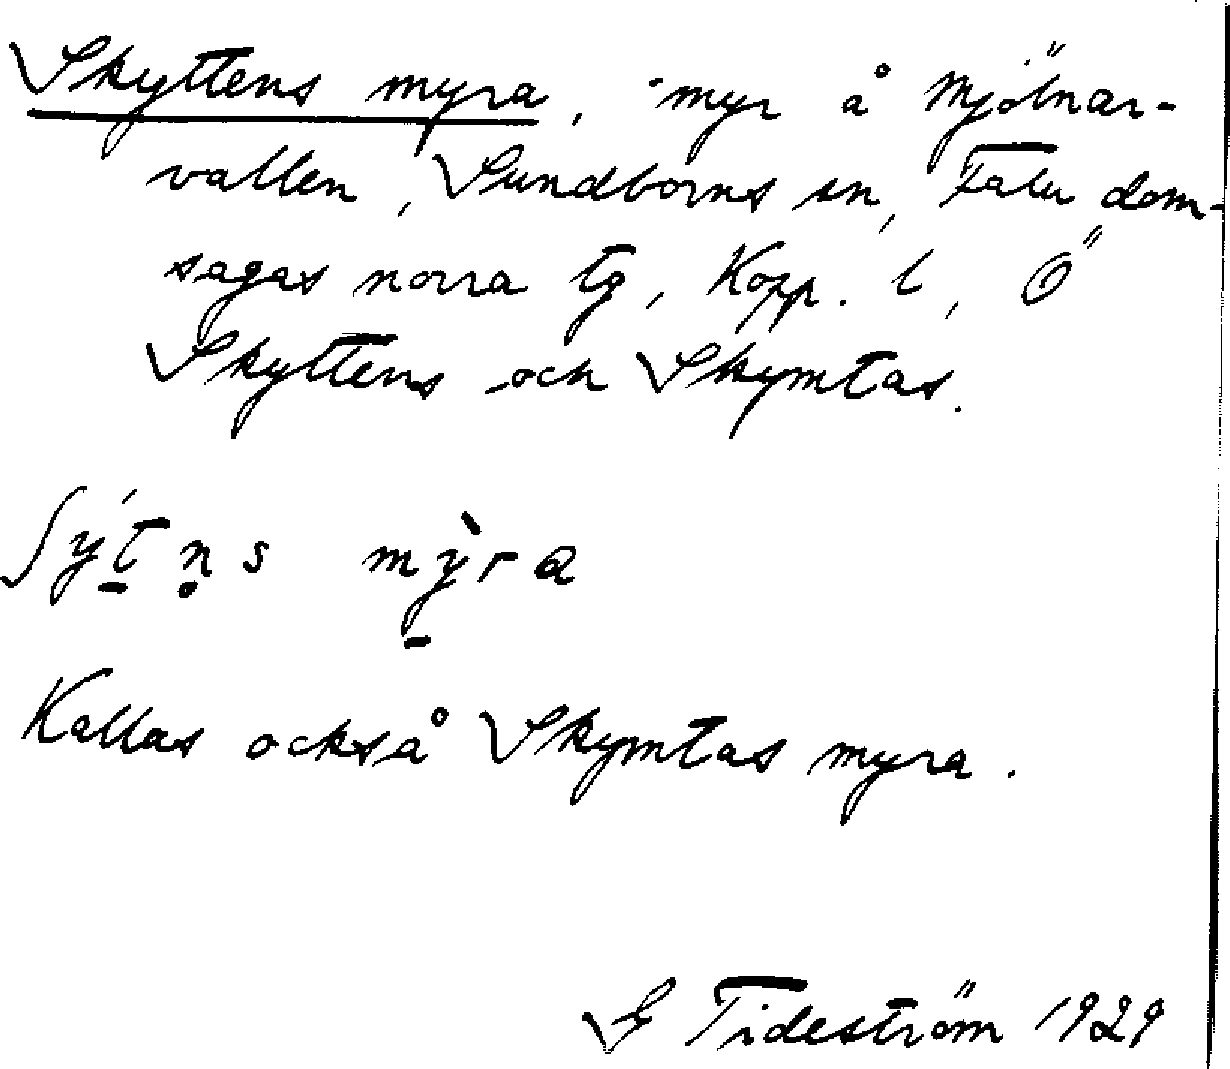 Skyttens myra, myr å Mjölnar-
vallen, Sundborns sn, Falu dom-
sagas norra tg, Kopp. l, Ö
Skyttens och Skymtas.
ʃýt̠n̥s mỳ̠ra
Kallas också Skymtas myra.
G Tideström 1929